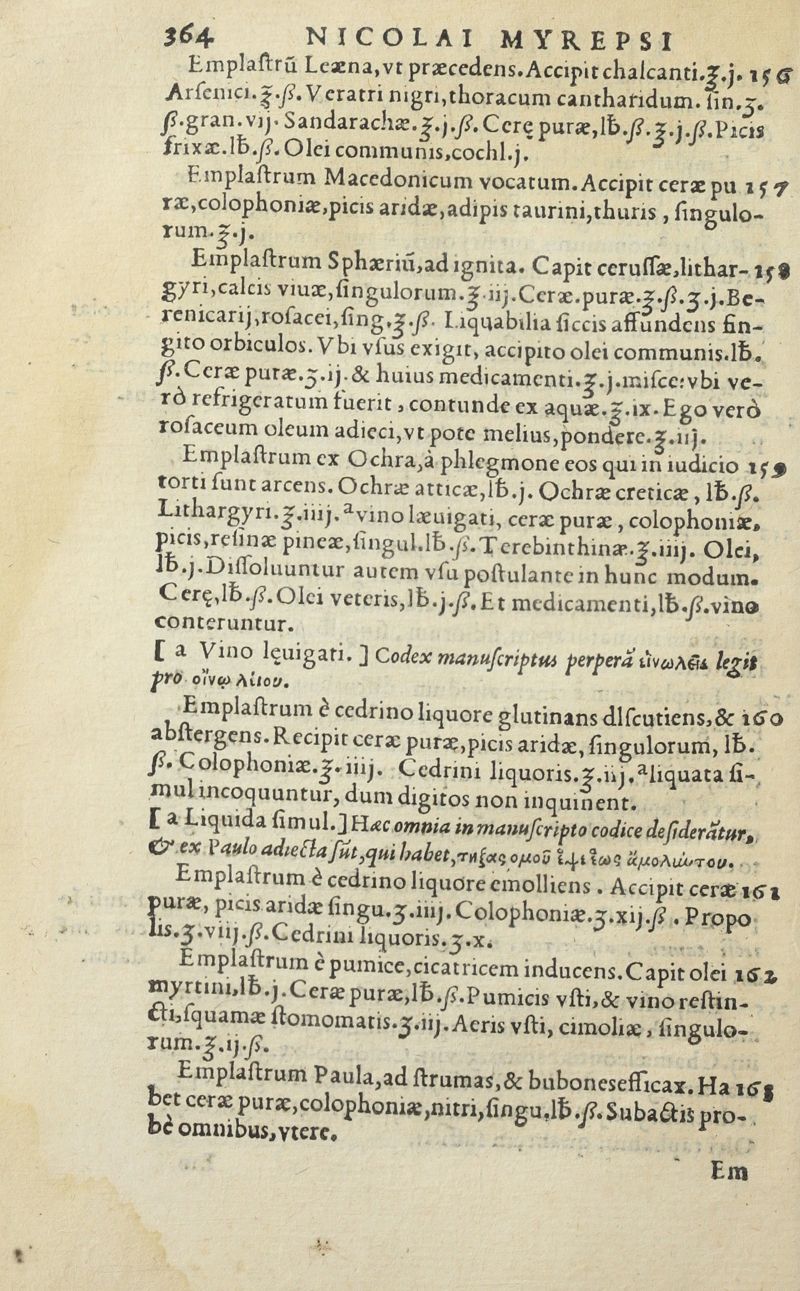 364 NICOLAI MYREPSI
Emplaſtrū Leæna,vt præcedens.Accipit chalcanti.℥.j. 156
Arſenici.℥.ß.Veratri nigri,thoracum cantharidum. ſin.ʒ.
ß.gran.vij. Sandarachæ.℥.j.ß.Cerę puræ,℔.ß.℥.j.ß.Picis
frixæ.℔.ß.Olei communis,cochl.j.
Emplaſtrum Macedonicum vocatum.Accipit ceræ pu 157
ræ,colophoniæ,picis aridæ,adipis taurini,thuris , ſingulo-
rum.℥.j.
Emplaſtrum Sphæriū,ad ignita. Capit ceruſſæ,lithar- 158
gyri,calcis viuæ,ſingulorum.℥.iij.Ceræ.puræ.℥.ß.ʒ.j.Be-
renicarij,roſacei,ſing.℥.ß. Liquabilia ſiccis affundens fin-
gito orbiculos. Vbi vſus exigit, accipito olei communis.℔.
ß.Ceræ puræ.ʒ.ij.& huius medicamenti.℥.j.miſce:vbi ve-
rò refrigeratum fuerit , contunde ex aquæ.℥.ix. Ego verò
roſaceum oleum adieci,vt pote melius,pondere.℥.iij.
Emplaſtrum ex Ochra,à phlegmone eos qui in iudicio 159
torti ſunt arcens. Ochræ atticæ,℔.j. Ochræ creticæ , ℔.ß.
Lithargyri.℥.iiij.ᵃvino læuigati, ceræ puræ , colophoniæ,
picis,reſinæ pineæ,ſingul.℔.ß.Terebinthinæ.℥.iiij. Olei,
℔.j.Diſſoluuntur autem vſu poſtulante in hunc modum.
Cerę,℔.ß.Olei veteris,℔.j.ß.Et medicamenti,℔.ß.vino
conteruntur.
[ a Vino lęuigati. ] Codex manuſcriptus perperā legit
pro οἴνῳ λείου.
Emplaſtrum è cedrino liquore glutinans dlſcutiens,& 160
abſtergens.Recipit ceræ puræ,picis aridæ, ſingulorum, ℔.
ß.Colophoniæ.℥.iiij. Cedrini liquoris.℥.iij.ᵃliquata ſi-
mul incoquuntur, dum digitos non inquinent.
[ a Liquida ſimul.] Hæc omnia in manuſcripto codice deſiderātur,
& ex Paulo adiecta ſūt,qui habet,τήξας ὁμοῦ ἕψει ἕως ἀμολύντου.
Emplaſtrum è cedrino liquore emolliens . Accipit ceræ 161
puræ, picis aridæ ſingu.ʒ.iiij.Colophoniæ.ʒ.xij.ß . Propo
lis.ʒ.viij.ß.Cedrini liquoris.ʒ.x.
Emplaſtrum è pumice,cicatricem inducens.Capit olei 162
myrtini,℔.j.Ceræ puræ,℔.ß.Pumicis vſti,& vino reſtin-
cti,ſquamæ ſtomomatis.ʒ.iij.Aeris vſti, cimoliæ, ſingulo-
rum.℥.ij.ß.
Emplaſtrum Paula,ad ſtrumas,& bubonesefficax. Ha 163
bet ceræ puræ,colophoniæ,nitri,ſingu.℔.ß.Subactis pro-
bè omnibus,vtere.
Em